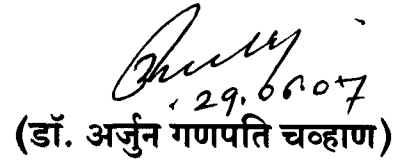 29.06.07
(डॉ. अर्जुन गणपति चव्हाण)